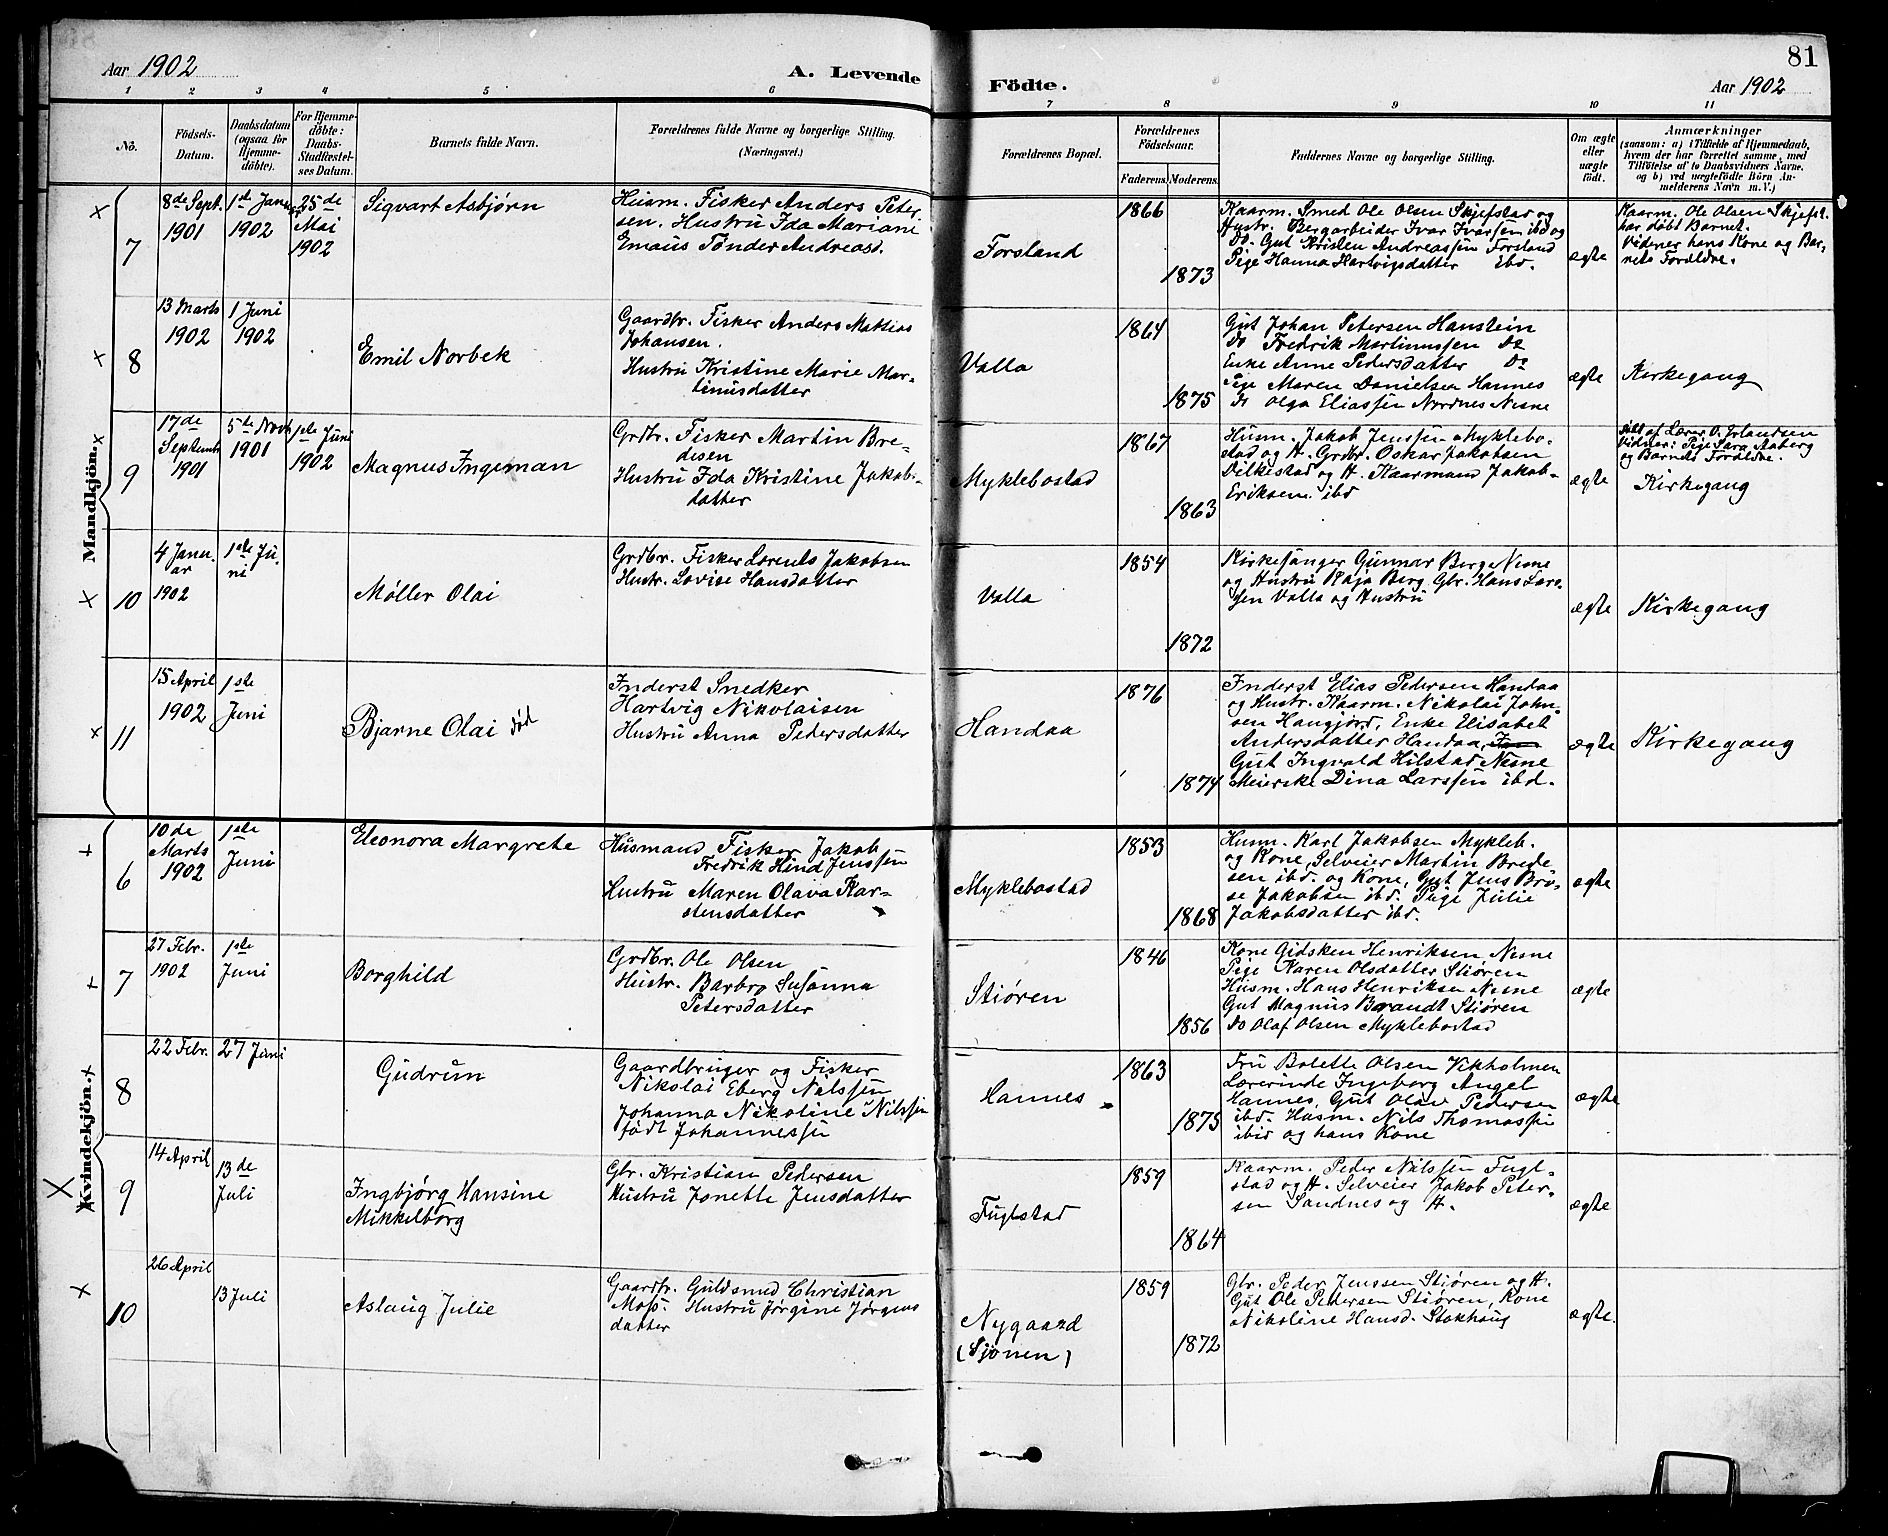 81
Aar 1902
A. Levende
Födte.
Aar 1902
1 2 3 4 5 6 7 8 9 10 11
No.
Födsels-
Datum.
Daabsdatum
(ogsaa for
Hjemme-
döbte).
For Hjemme-
döbte:
Daabs-
Stadfæstel-
ses Datum.
Barnets fulde Navn.
Forældrenes fulde Navne og borgerlige Stilling.
(Næringsvei.)
Forældrenes Bopæl.
Forældrenes
Födselsaar.
Faderens. Moderens.
Faddernes Navne og borgerlige Stilling.
Om ægte
eller
uægte
födt.
Anmærkninger
(saasom: a) i Tilfælde af Hjemmedaab,
hvem der har forrettet samme, med
Tilföielse af to Daabsvidners Navne,
og b) ved uægtefödte Börn An-
melderens Navn m. V.)
Mandkjön.
7
8de Sept.
1901
1st Januar
1902
25de
Mai
1902
Sigvart Asbjørn
Husm. Fisker Anders Peter-
sen. Hustru Ida Mariane
Emaus Tønder Andreasd.
Forsland
1866
1873
Kaarm. Smed Ole Olsen Skjefstad og
Hustr. Bergarbeider Ivar Ivarsen ibd og
Do. Gut Kristen Andreassen Forsland
Pige Hanna Hartvigsdatter Ibd.
ægte
Kaarm. Ole Olsen Skjefst.
har døbt Barnet.
Vidner hans Kone og Bar-
nets Forældre.
8
13 Marts
1902
1 Juni
1902
Emil Norbek
Gaardbr. Fisker Anders Mathias
Johansen.
Hustru Kristine Marie Mar-
tinusdatter
Valla
1864
1875
Gut Johan Petersen Hanstein
Do Fredrik Martinussen Do
Enke Anne Pedersdatter Do
Pige Maren Danielsen Hannes
Do Olga Eliassen Nordnes Nesne
ægte
Kirkegang
9
17de
Septemb.
1901
5te Novb
1901
1ste Juni
1902
Magnus Ingeman
Grdbr. Fisker Martin Bre-
desen
Hustru Ida Kristine Jakobs-
datter
Myklebostad
1867
1863
Husm. Jakob Jenssen Myklebo-
stad og H. Grdbr. Oskar Jakobsen
Dilkestad og H. Kaarmand Jakob
Eriksen ibd
ægte
Døbt af Lærer O. Erlandsen
Vidner: Pige Sara Aaberg
og Barnets Forældre.
Kirkegang
10
4 Janu-
ar
1902
1ste Ju-
ni
Møller Olai
Grdbr. Fisker Lorents Jakobsen
Hustr. Lovise Hansdatter
Valla
1854
1872
Kirkesanger Gunnar Berg Nesne
og Hustru Kaja Berg. Gbr. Hans Lars-
sen Valla og Hustru
ægte
Kirkegang
11
15 April
1902
1ste
Juni
Bjarne Olai død
Inderst Snedker
Hartvig Nikolaisen
Hustru Anna Pedersdatter
Handaa
1876
1874
Inderst Elias Pedersen Handaa
og Hustr. Kaarm. Nikolai John-
sen Hangjord, Enke Elisabet
Andersdatter Handaa,
Gut Ingvald Hilstad Nesne
Meierske Dina Larssen ibd.
ægte
Kirkegang
Kvindekjön.
6
10de
Marts
1902
1ste
Juni
Eleonora Margrete
Husmand Fisker Jakob
Fredrik Hind Jenssen
Hustru Maren Olava Kar-
stensdatter
Myklebostad
1853
1868
Husm. Karl Jakobsen Mykleb.
og Kone, Selveier Martin Brede
sen ibd. og Kone, Gut Jens Brø-
se Jakobsen ibd. Pige Julie
Jakobsdatter ibd.
ægte
7
27 Febr.
1902
1ste
Juni
Borghild
Grdbr. Ole Olsen
Hustr. Barbro Susanna
Petersdatter
Stiøren
1846
1856
Kone Gidsken Henriksen Nesne
Pige Karen Olsdatter Stiøren
Husm. Hans Henriksen Nesne
Gut Magnus Brandt Stiøren
Do Olaf Olsen Myklebostad
ægte
8
22 Febr.
27 Juni
Gudrun
Gaardbruger og Fisker
Nikolai Eberg Nilssen
Johanna Nikoline Nilssen
født Johannessen
Hannes
1863
1875
Fru Bolette Olsen Vikholmen
Lærerinde Ingeborg Angel
Hannes, Gut Olav Pedersen
ibd. Husm. Nils Thomassen
ibid og hans Kone
ægte
9
14 April
13de
Juli
Ingbjørg Hansine
Mikkelborg
Gbr. Kristian Pedersen
Hustru Jonette Jensdatter
Fuglstad
1859
1864
Kaarm. Peder Nilssen Fugl-
stad og H. Selveier Jakob Peter-
sen Sandnes og H.
ægte
10
26 April
13 Juli
Aslaug Julie
Gaardbr. Guldsmed Christian
Moss. Hustru Jørgine Jørgens
datter
Nygaard
(Sjonen)
1859
1872
Gbr. Peder Jenssen Stiøren og H.
Gut Ole Pedersen Stiøren, Kone
Nikoline Hansd. Stokhaug
ægte.